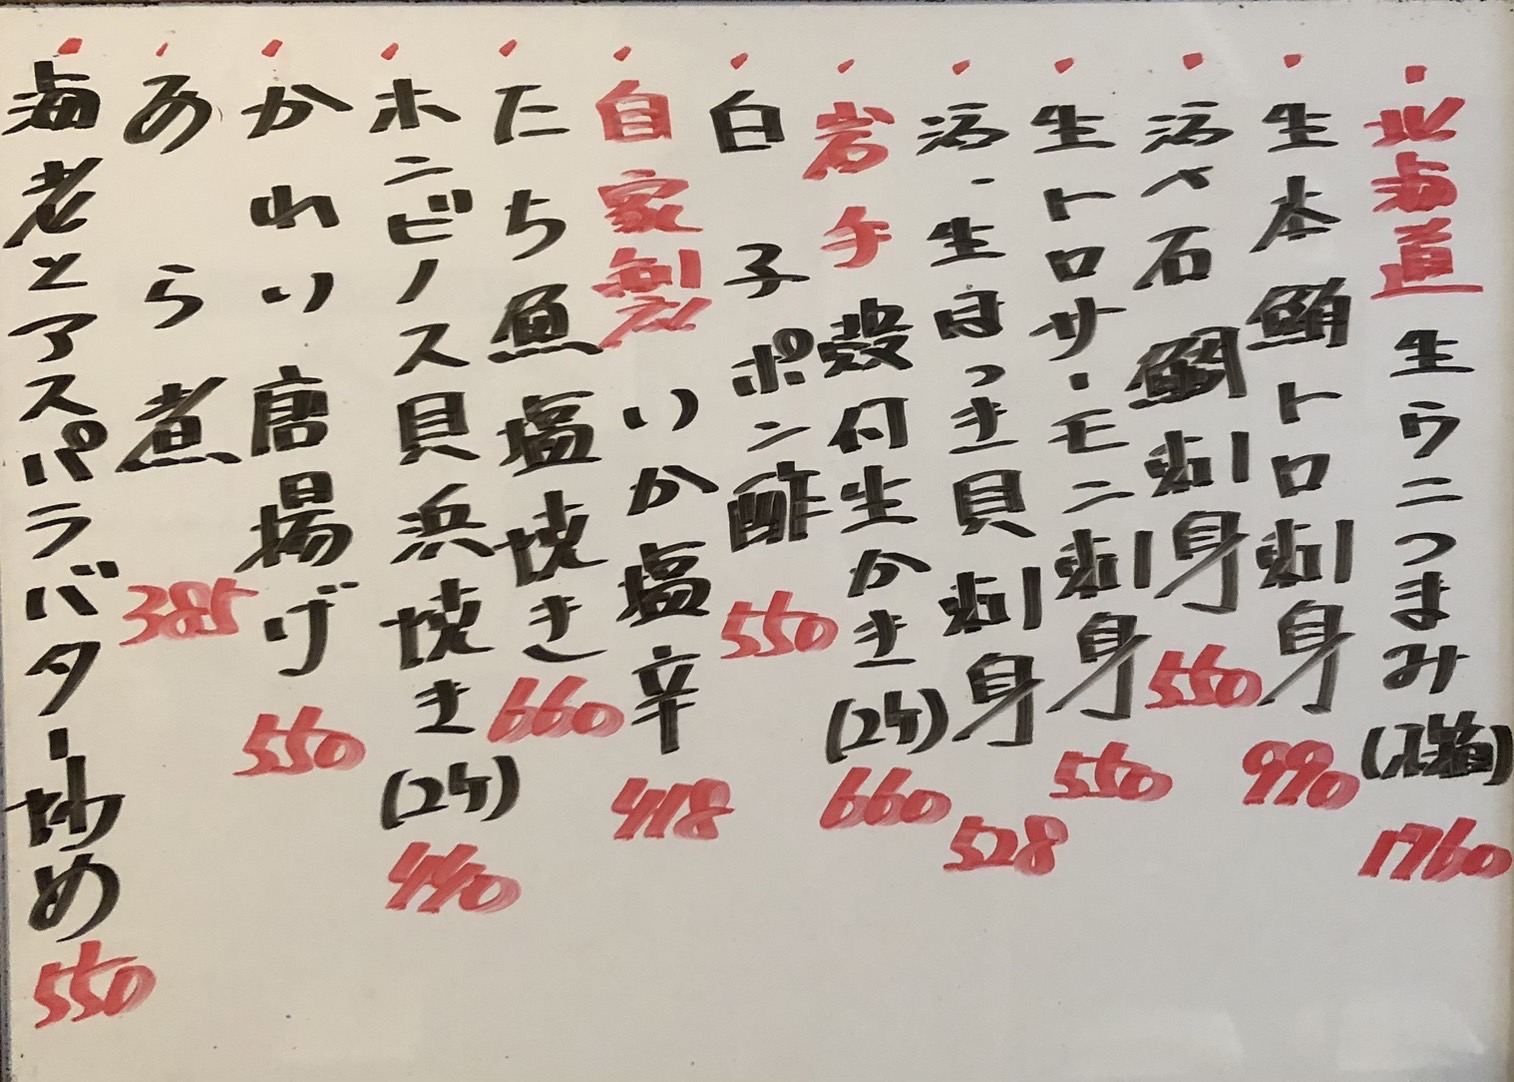 ・北海道 生ウニつまみ(一箱) 1760
・生本鮪トロ刺身 990
・活〆石鯛刺身 550
・生トロサーモン刺身 550
・活・生ほっき貝刺身 528
・岩手 殻付生かき(2ケ) 660
・白子ポン酢 550
・自家製 いか塩辛 418
・たち魚塩焼き 660
・ホンビノス貝浜焼き(2ケ) 440
・かれい唐揚げ 550
・あら煮 385
・海老とアスパラバター炒め 550